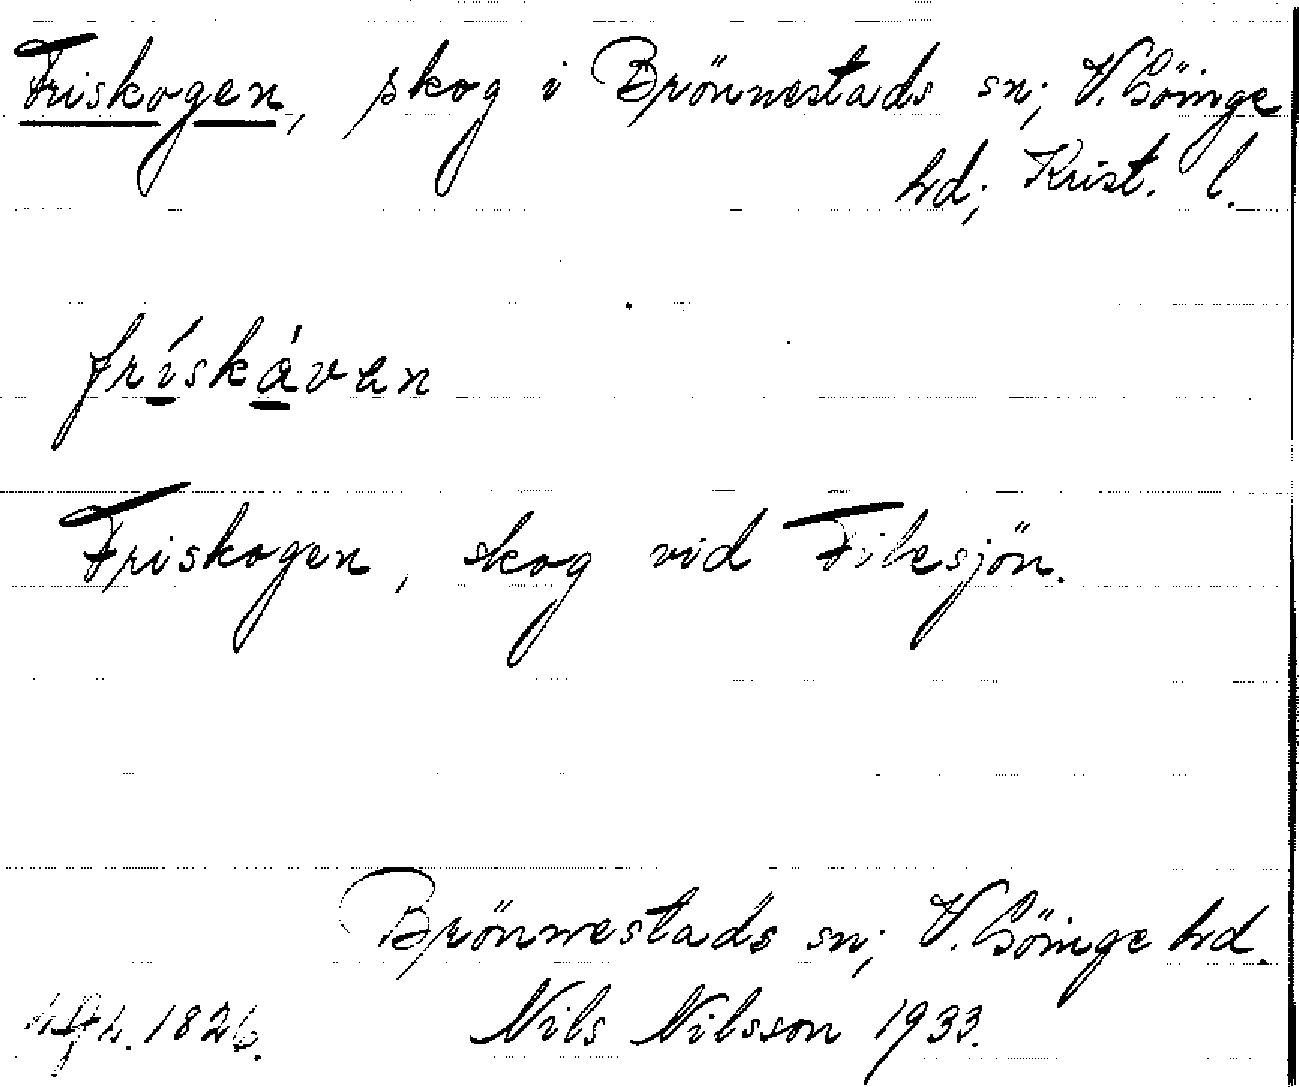 Friskogen, skog i Brönnestads sn; V. Göinge
hd; Krist. l.
frískávan
Friskogen, skog vid Filesjön.
Brönnestads sn; V. Göinge hd.
1826. Nils Nilsson 1933.